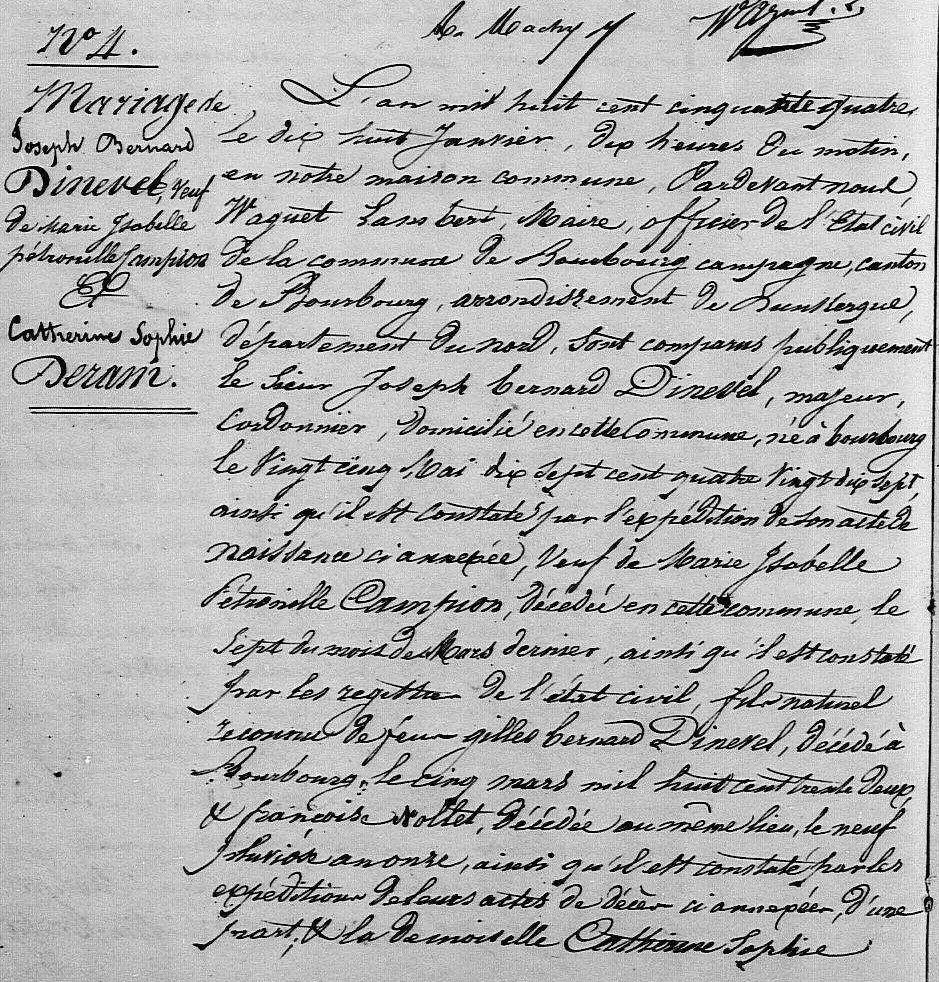 A. Machy
W Aguet
N° 4.
Mariage de
Joseph Bernard
Dinevel, Veuf
de Marie Isabelle
pétronille Campion
&
Catherine Sophie
Deram.
L'an mil huit cent cinquante quatre
le dix huit Janvier, dix heures du matin,
en notre maison commune, Pardevant nous
Waguet Lambert, Maire, officier de l'Etat civil
de la commune de Bourbourg campagne, canton
de Bourbourg, arrondissement de Dunkerque,
département du nord, sont comparus publiquement
le Sieur Joseph bernard Dinevel, majeur,
Cordonnier, domicilié en cette Commune, né à bourbourg
le Vingt cinq Mai dix sept cent quatre Vingt dix sept,
ainsi qu'il est constaté par l'expédition de son acte de
naissance ci annexée, Veuf de Marie Isabelle
Pétronille Campion, décédée en cette commune, le
Sept du mois de Mars dernier, ainsi qu'il est constaté
par les registres de l'état civil, fils naturel
reconnu de feu gilles bernard Dinevel, décédé à
Bourbourg, le cinq mars mil huit cent trente deux,
& françoise Nollet, décédée au même lieu, le neuf
pluviôse an onze, ainsi qu'il est constaté par les
expéditions de leurs actes de décès ci annexées, d'une
part, & la demoiselle Catherine Sophie